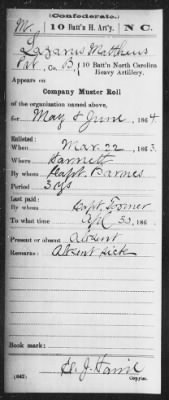 (Confederate.)
M 10 Batt'n H. Art'y. N C.
Lazarus Matthews
Pvt, Co. B, 10 Batt'n North Carolina Heavy Artillery.
Appears on
Company Muster Roll
of the organization named above,
for May & June, 1864
Enlisted:
When Mar. 22, 1863.
Where Harnett
By whom Capt. Barnes
Period 3 ys
Last paid:
By whom Capt. Toomer
To what time Apl 30, 186
Present or absent Absent
Remarks: Absent Sick
Book mark:
(642)
Copyist.